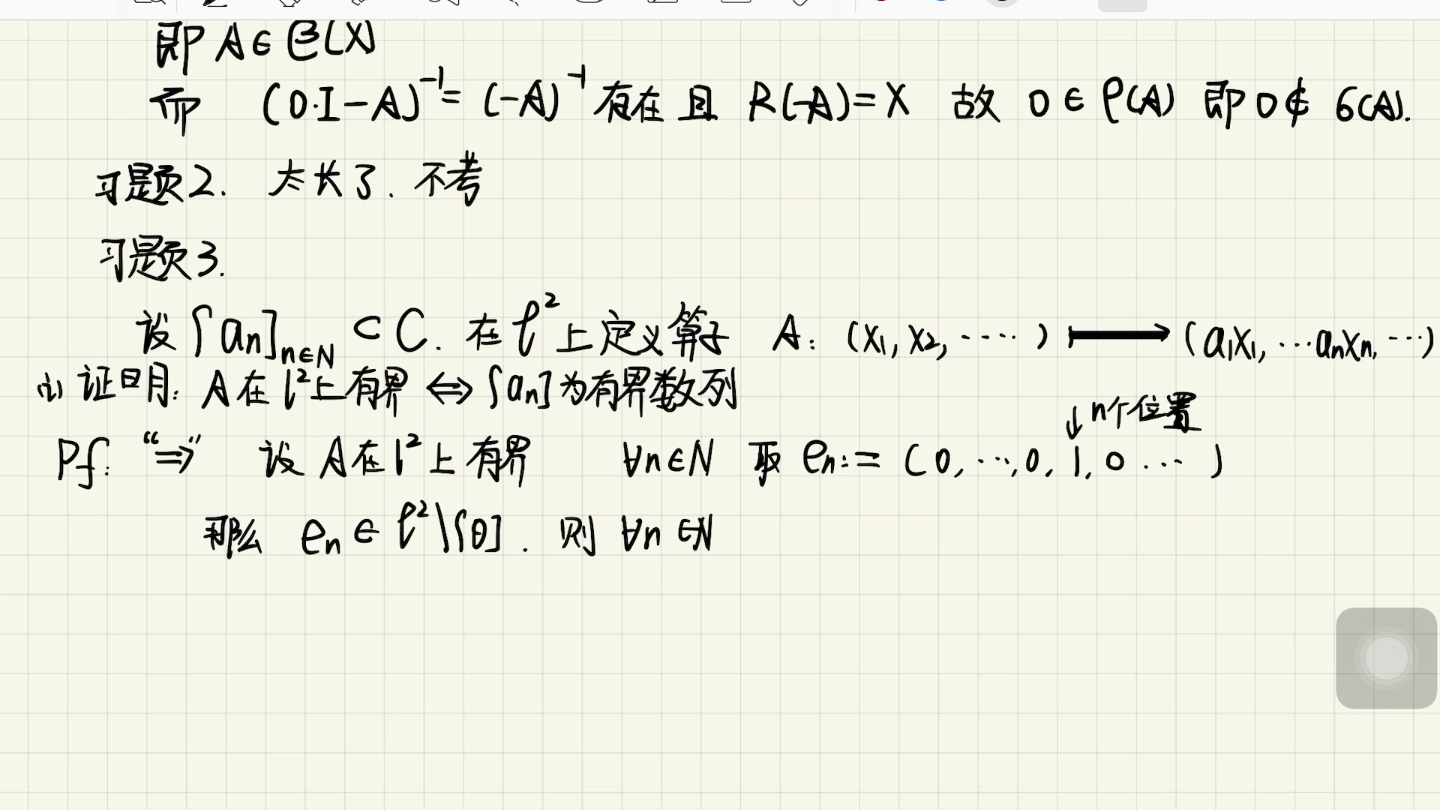 即 A∈ℬ(X)
而 (0·I-A)⁻¹=(-A)⁻¹ 存在且 R(-A)=X 故 0∈ρ(A) 即 0∉σ(A).
习题2. 太长了. 不考
习题3.
设{an}n∈N ⊂ C. 在 ℓ² 上定义算子 A: (x₁, x₂, ····) ⟼ (a₁x₁, ···anxn, ···)
(1) 证明: A在 l² 上有界 ⇔ {an}为有界数列
↓n个位置
Pf: “⇒” 设 A在 l² 上有界 ∀n∈N 取 en:= (0, ···, 0, 1, 0 ··· )
那么 en∈ℓ²\{θ}. 则 ∀n∈N